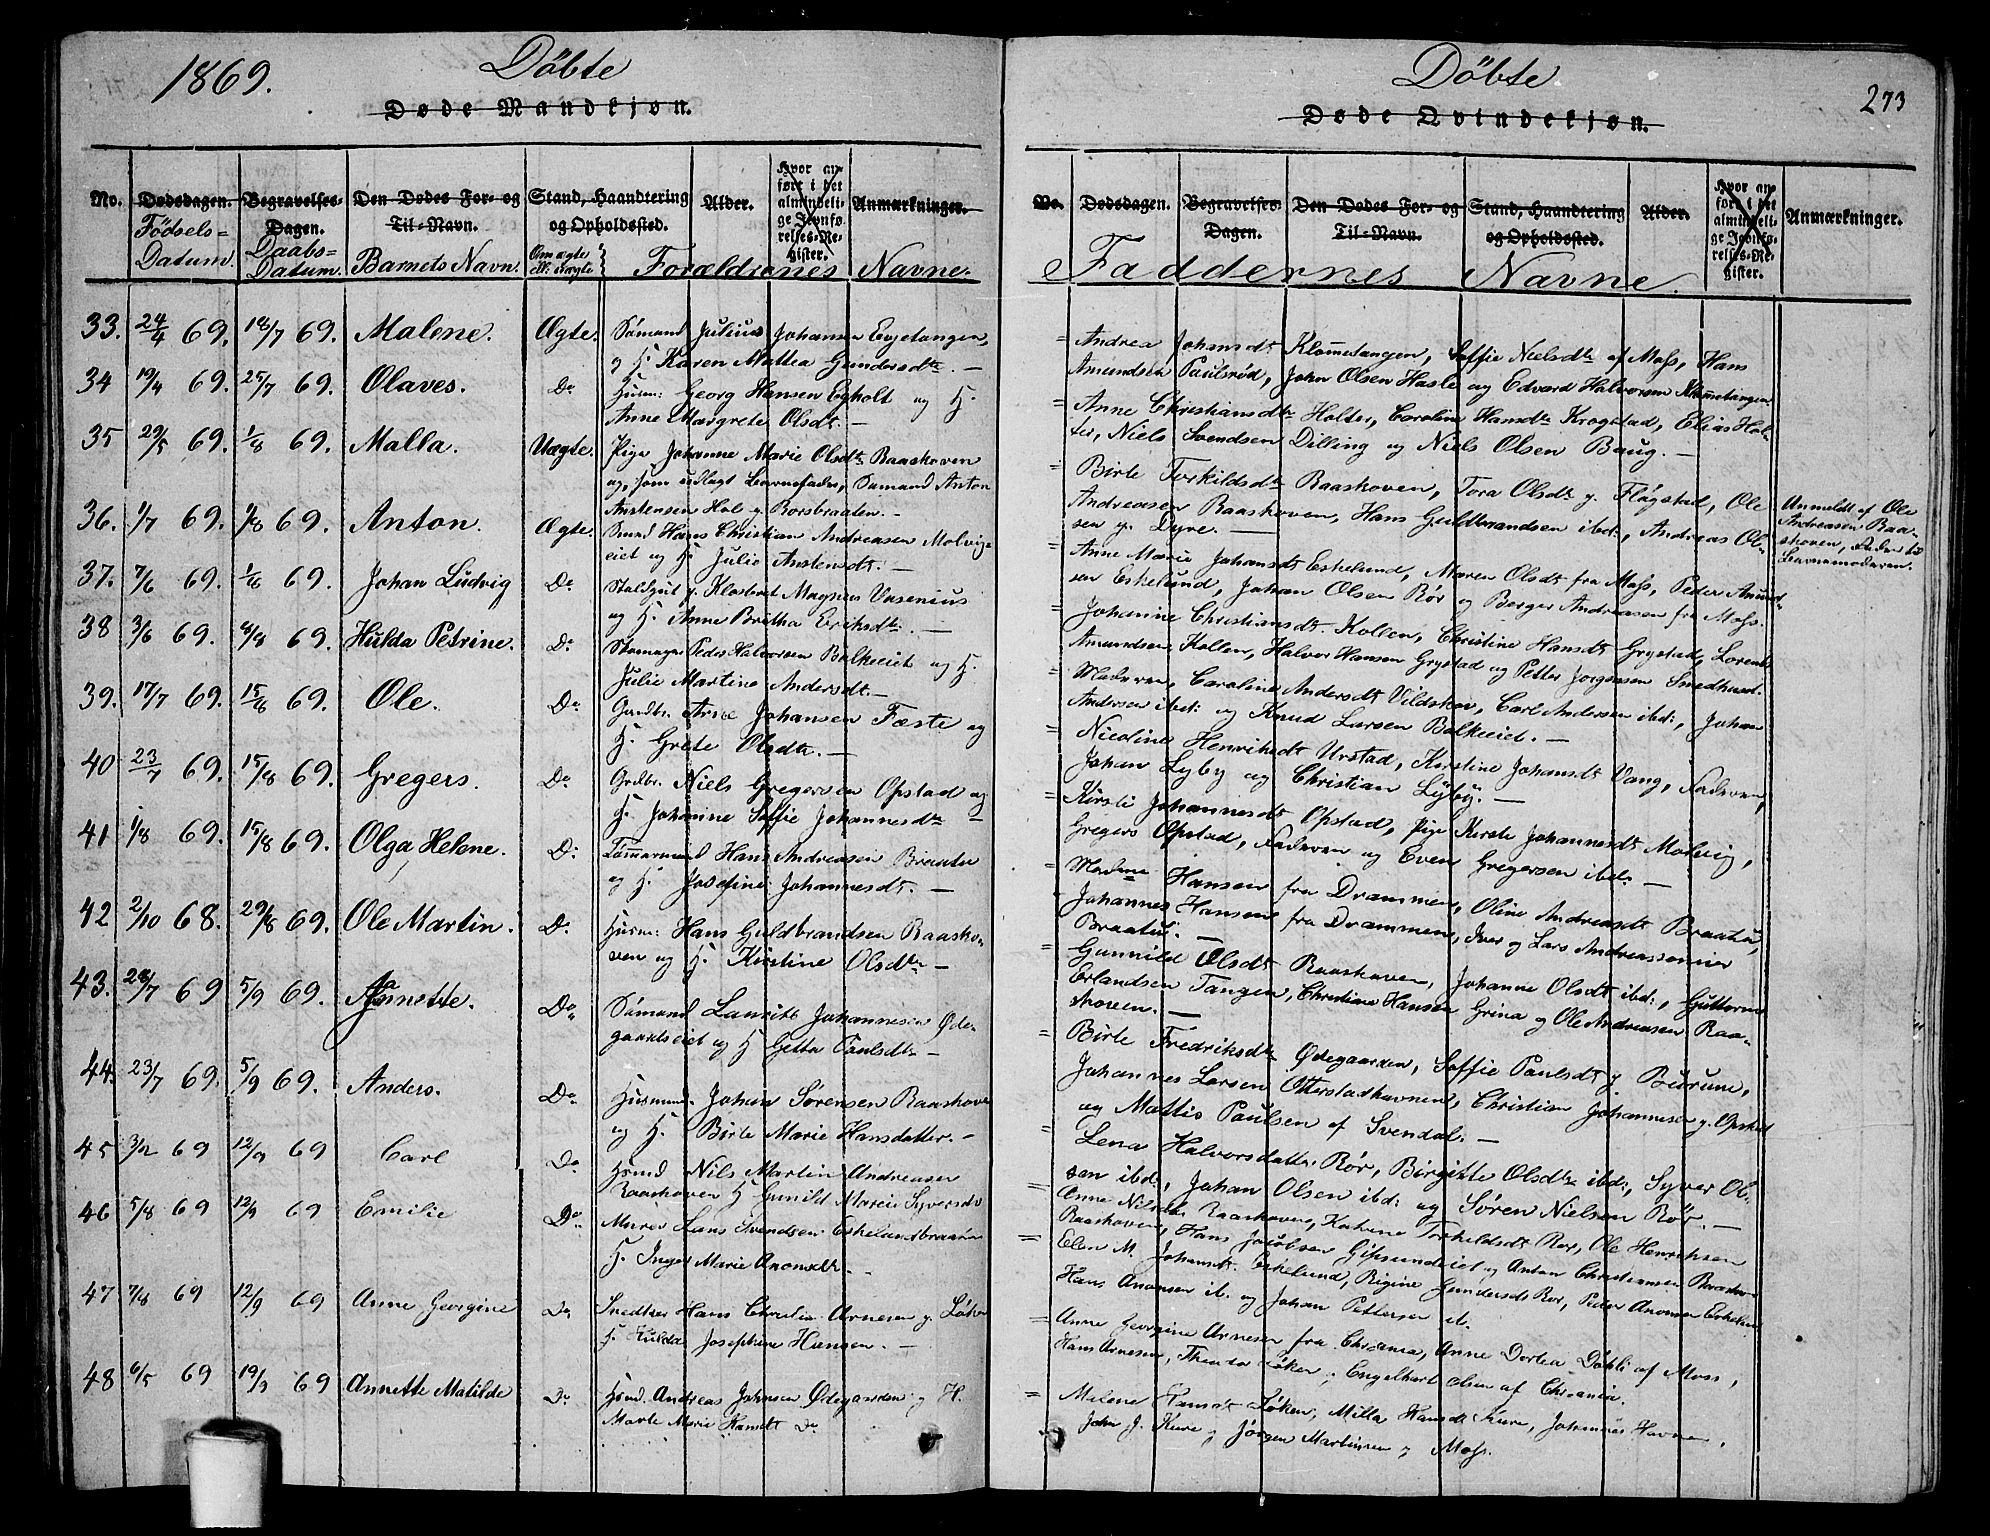 1869.
Döbte
Døde Mandkjøn.
No.
Dødsdagen.
Begravelses-
Dagen.
Den Dødes For- og
Til-Navn.
Stand, Haandtering
og Opholdssted.
Alder.
Hvor an-
ført i det
almindeli-
ge Jevnfø-
relses-Re-
gister.
Anmærkninger.
Födsels-
Datum.
Daabs-
Datum.
Barnets Navn.
Om ægte
ell. uægte
Forældrenes Navne.
33. 24/4 69. 18/7 69. Malene. Ægte. Sömand Julius Johansen Evjetangen,
og H. Karen Mathea Gundersdtr. —
34 19/4 69. 25/7 69. Olaves. Do Husm: Georg Hansen Egholt og H.
Anne Margrete Olsdt. —
35 29/5 69. 1/8 69. Malla. Uægte. Pige Johanne Marie Olsdtr Raaskoven
og, som udlagt Barnefader, Sömand Anton
Anstensen Hols g. Korsbraaten. —
36. 1/7 69. 1/8 69. Anton. Ægte. Smd Hans Christian Andreasen Molvig-
eiet og H. Julie Anstensdt. —
37. 7/6 69. 1/8 69. Johan Ludvig Do Staldgut g. Klostret Magnus Vasenius
og H. Anne Britha Eriksdtr. —
38 3/6 69. 8/8 69. Hulda Petrine. Do Skomager Peder Halvorsen Bolkeeiet og H.
Julie Martine Andersdt. —
39. 17/7 69. 15/8 69. Ole. Do Gaardbr. Arne Johansen Fæste og
H. Grete Olsdtr. —
40 23/7 69. 15/8 69. Gregers. Do Grdbr. Niels Gregersen Opstad og
H. Johanne Soffie Johannesdtr —
41 1/8 69. 15/8 69. Olga Helene. Do Tömmermand Hans Andreasen Braaten
og H. Josefine Johannesdt. —
42 2/10 68. 29/8 69. Ole Martin. Do Husm: Hans Guldbrandsen Raasko-
ven og H. Kirstine Olsdtr —
43. 28/7 69 5/9 69. Annette. Do Sömand Lauritz Johannesen Öde-
gaardseiet og H Getta Paulsdtr —
44. 23/7 69. 5/9 69. Anders. Do Husmand. Johan Sörensen Raaskoven
og H. Birte Marie Hansdatter. —
45 3/2 69 12/9 69 Carl Do Hsmd Nils Martin Andreasen
Raaskoven H Gunild Marie Syversdtr
46 5/8 69 12/9 69 Emilie Do Murer Hans Svendsen Eskelundbraaten
H. Inger Marie Anonsdtr —
47 7/8 69 12/9 69 Anne Georgine Do Snedker Hans Christian Arnesen g. Löken
H. Hulda Josephine Hansen. —
48 6/5 69 19/9 69 Annette Matilde Do Hsmd Andreas Johnsen Ödegaarden g H.
Marte Marie Hansdt Do
Döbte
273
Døde Qvindekjøn.
No.
Dødsdagen.
Begravelses-
Dagen.
Den Dødes For- og
Til-Navn.
Stand, Haandtering
og Opholdssted.
Alder.
Hvor an-
ført i det
almindeli-
ge Jevnfø-
relses-Re-
gister.
Anmærkninger.
Faddernes Navne.
= Andrea Johansdt Klommetangen, Soffie Nielsdtr af Moss, Hans
Amundsen Paulsrød, John Olsen Hasle og Edvard Halvorsen Klommetangen.
= Anne Christiansdtr Holter, Caroline Hansdtr Krogstad, Elias Hol-
ter, Niels Svendsen Dilling og Niels Olsen Baug. —
= Birte Torkildsdtr Raaskoven, Tora Olsdt g. Flögstad, Ole
Andreasen Raaskoven, Hans Guldbrandsen ibd:, Andreas Ol-
sen g. Dyre. —
Anmeldt af Ole
Andreasen Raa-
skoven, Fader til
Barnemoderen.
= Anne Marie Johansdt Eskelund, Maren Olsdt fra Moss, Peder Amund-
sen Eskelund, Johan Olsen Rör og Berger Andreasen fra Moss.
= Johanne Christiansdt. Kollen, Christine Hansdt Grystad, Lorents
Amundsen Kollen, Halvor Hansen Grystad og Petter Jörgensen Smedhuset.
= Moderen, Caroline Andersdt Vildskov, Carl Andersen ibd:, Johan
Andersen ibd: og Knud Larsen Bolkeeiet. —
= Nicoline Henriksdt Urstad, Kirstine Johansdt Vang, Faderen,
Johan Lyby og Christian Lyby. —
= Kirsti Johannesdt Opstad, Pige Kirste Johannesdt Molvig,
Gregers Opstad, Faderen og Even Gregersen ibd. —
= Madme Hansen fra Drammen, Oline Andreasdt Braaten,
Johannes Hansen fra Drammen, Iver og Lars Andreassönner
Braaten. —
= Gunnild Olsdt Raaskoven, Johanne Olsdt ibd:, Guttorm
Erlandsen Tangen, Christian Hansen Grina og Ole Andreasen Raa-
skoven. —
= Birte Fredriksdtr Ödegaarden, Soffie Paulsdt g. Burum,
Johannes Larsen Otterstadhavnen, Christian Johannesen g. Opstad
og Mattis Paulsen af Svendal. —
= Lena Halvorsdatter Rör, Birgitte Olsdtr ibd:, Syver Ol-
sen ibd:, Johan Olsen ibd: og Sören Nielsen Rör. —
= Anne Nilsdt Raaskoven, Katrine Torkildsdt Rör, Ole Henriksen
Raaskoven, Hans Jacobsen Gipsundeiet og Anton Christiansen Raasko-
= Elen M. Johansdt. Eskelund, Regine Gundersdt Rör, Peder Anonsen Eskelun
Hans Anonsen ib. og Johan Pettersen ib.
= Anne Georgine Arnesen fra Chrania, Anne Dortea Döhli af Moss,
Hans Arnesen, Thea Löken, Engelhart Olsen af Chrania.
= Malene Hansdt Löken, Milla Hansdt Kure, Johannes Havnen,
John J. Kure g Jörgen Martinsen g Moss.